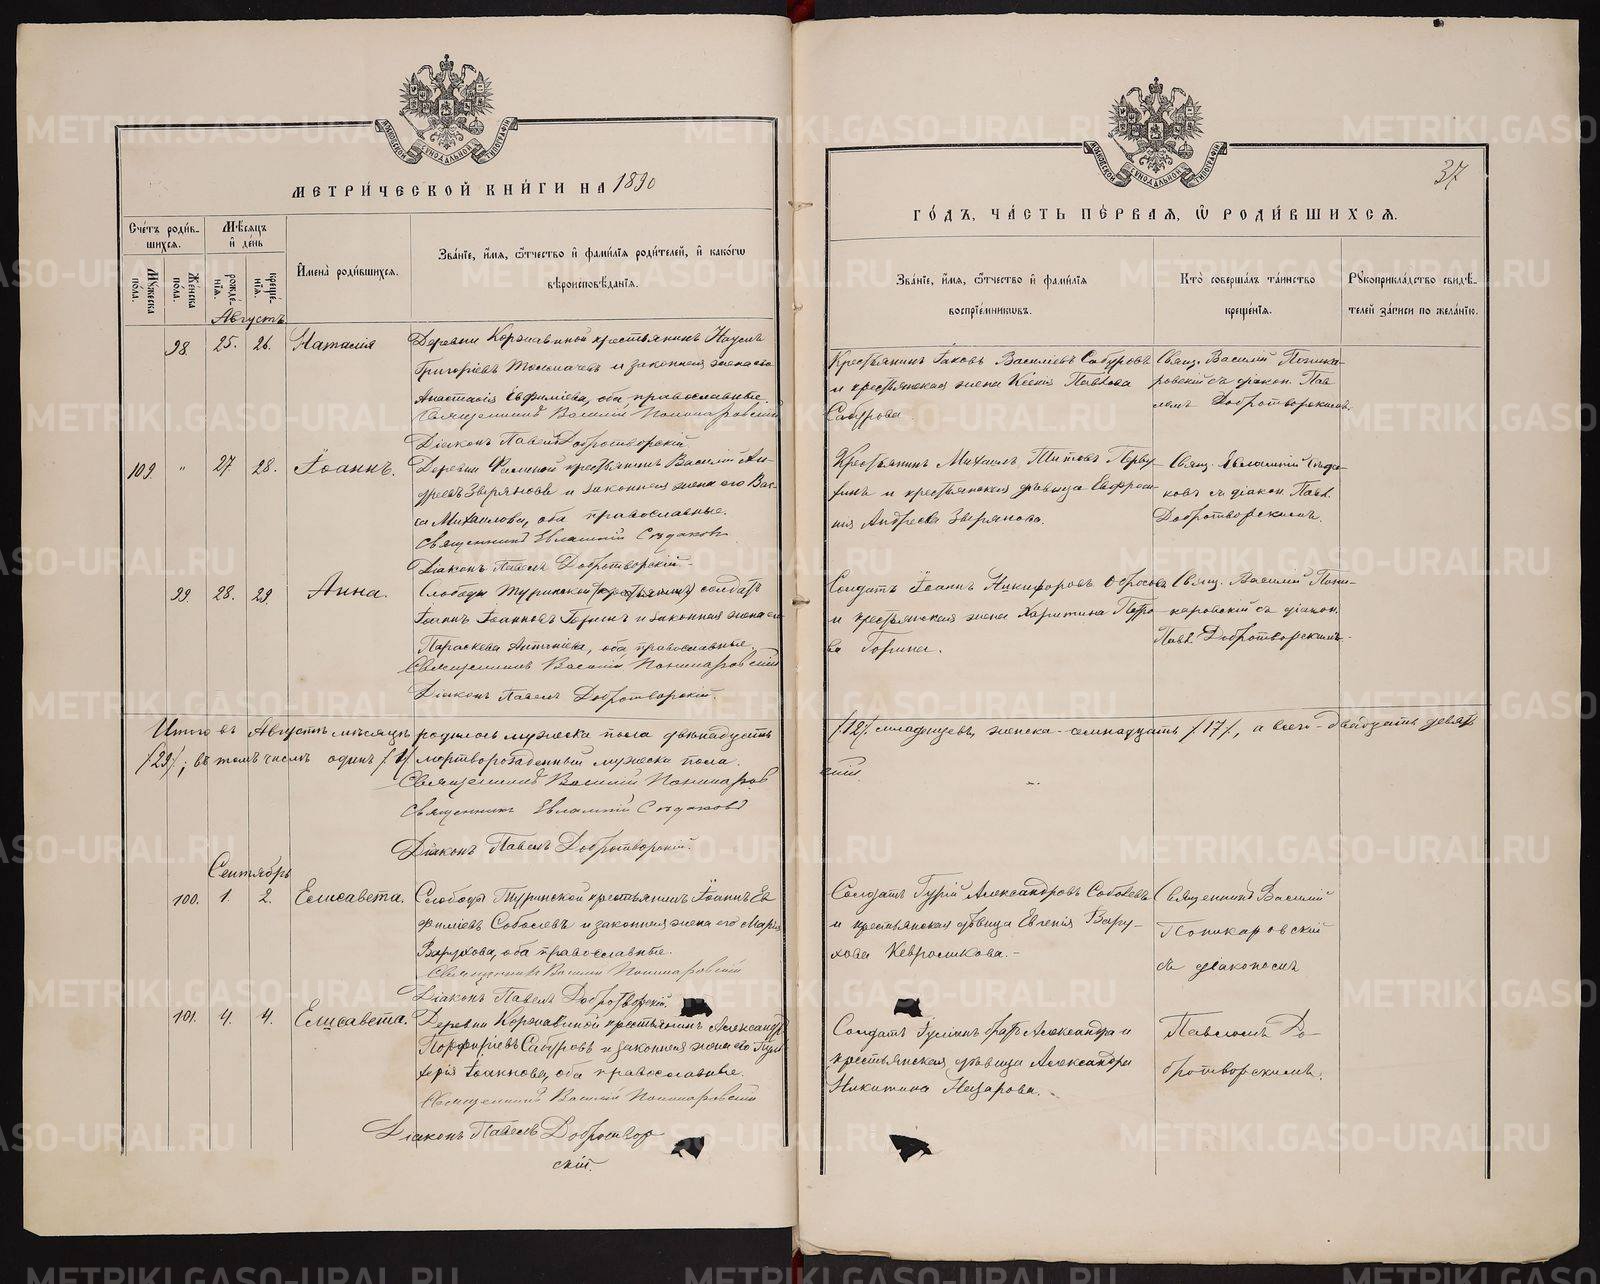 МЕТРИ́ЧЕСКОЙ КНИ́ГИ НА 1890
Сче́тъ роди́в-
шихся.
Мѣ́сяцъ
и҆ де́нь
Мꙋ́жеска
по́ла.
Же́нска
по́ла.
рожде́-
нїѧ.
креще́-
нїѧ.
И҆мена̀ роди́вшихсѧ.
Зва́нїе, и҆́мѧ, ѻ҆́тчество и҆ фами́лїѧ роди́телей, и҆ како́гѡ
вѣроисповѣ́данїѧ.
Августъ.
98. 25. 26. Наталія
Деревни Коржавиной крестьянинъ Наумъ
Григоріевъ Толмачевъ и законная жена его
Анастасія Евфиміева, оба православные.
Священникъ Василій Поникаровскій
Діаконъ Павелъ Добротворскій.
109. " 27 28. Іоаннъ.
Деревни Фоминой крестьянинъ Василій Ан-
дреевъ Звѣряновъ и законная жена его Вас-
са Михаилова, оба православные.
Священникъ Евлампій Съдаковъ
Діаконъ Павелъ Добротворскій.
99. 28. 29. Анна.
Слободы Туринской (крестьянинъ) солдатъ
Іоаннъ Іоанновъ Горинъ и законная жена его
Параскева Антоніева, оба православные.
Священникъ Василій Поникаровскій
Діаконъ Павелъ Добротворскій.
Итого въ Августѣ мѣсяцѣ родилось мужеска пола двѣнадцать
/29/; въ томъ числѣ одинъ /1/ мертворожденный мужеска пола.
Священникъ Василій Поникаров
Священникъ Евлампій Съдаковъ
Діаконъ Павелъ Добротворскій.
Сентябрь
100. 1. 2. Елисавета.
Слободы Туринской крестьянинъ Іоаннъ Ев-
фиміевъ Соболевъ и законная жена его Марія
Варухова, оба православные.
Священникъ Василій Поникаровскій
Діаконъ Павелъ Добротворскій.
101. 4. 4. Елисавета.
Деревни Коржавиной крестьянинъ Александръ
Порфиріевъ Сабуровъ и законная жена его
Іоаннова, оба православные.
Священникъ Василій Поникаровскій
Діаконъ Павелъ Добротвор
скій.
37
ГО́ДЪ, ЧА́СТЬ ПЕ́РВАѦ, Ѡ҆ РОДИ́ВШИХСѦ.
Зва́нїе, и҆́мѧ, ѻ҆́тчество и҆ фами́лїѧ
воспрїе́мникѡвъ.
Кто̀ соверша́лъ та́инство
креще́нїѧ.
Рꙋкоприкла́дство свидѣ́-
телей за́писи по жела́нїю.
Крестьянинъ Іаковъ Василіевъ Сабуровъ
и крестьянская жена Ксенія Павлова
Сабурова.
Свящ. Василій Поника-
ровскій съ діакон. Пав
ломъ Добротворскимъ.
Крестьянинъ Михаилъ Титовъ Перву-
хинъ и крестьянская дѣвица Евфроси-
нія Андреева Звѣрянова.
Свящ. Евлампій Съда-
ковъ съ діакон. Павл.
Добротворскимъ.
Солдатъ Іоаннъ Никифоровъ
и крестьянская жена Харитина Петро
ва Горина.
Свящ. Василій Пони-
каровскій съ діакон.
Павл. Добротворскимъ.
/12/ младенцевъ, женска - семнадцать /17/, а всего - двадцать девять
скій.
Солдатъ Гурій Александровъ Соболевъ
и крестьянская дѣвица Евгенія Вару-
хова Кевролиткова.
Священникъ Василій
Поникаровскій
съ діакономъ
Солдатъ братъ Александра и
крестьянская дѣвица Александра
Никитина Назарова.
Павломъ До-
бротворскимъ.
METRIKI.GASO-URAL.RU